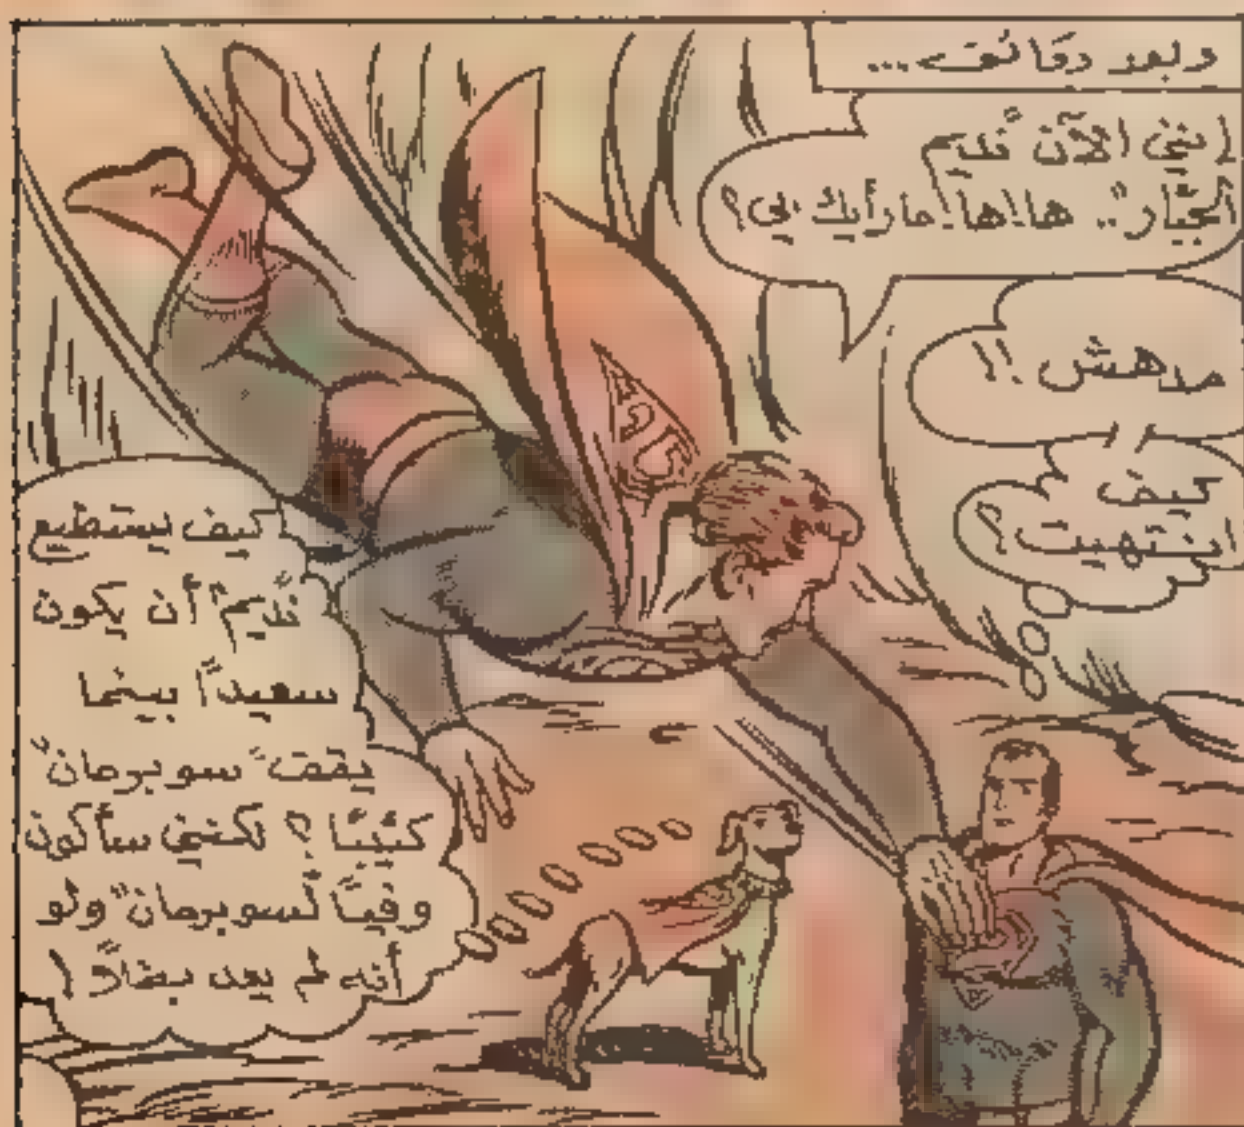 وبعد دقائق...
إنني الآن "نديم
الجبّار".. ها! ها! ما رأيك بي؟
مدهش !!
كيف
انتهيت؟
كيف يستطيع
"نديم" أن يكون
سعيداً بينما
يقف "سوبرمان"
كئيبًا ؟ لكنني سأكون
وفيًا لـ"سوبرمان" ولو
أنه لم يعد بطلاً !